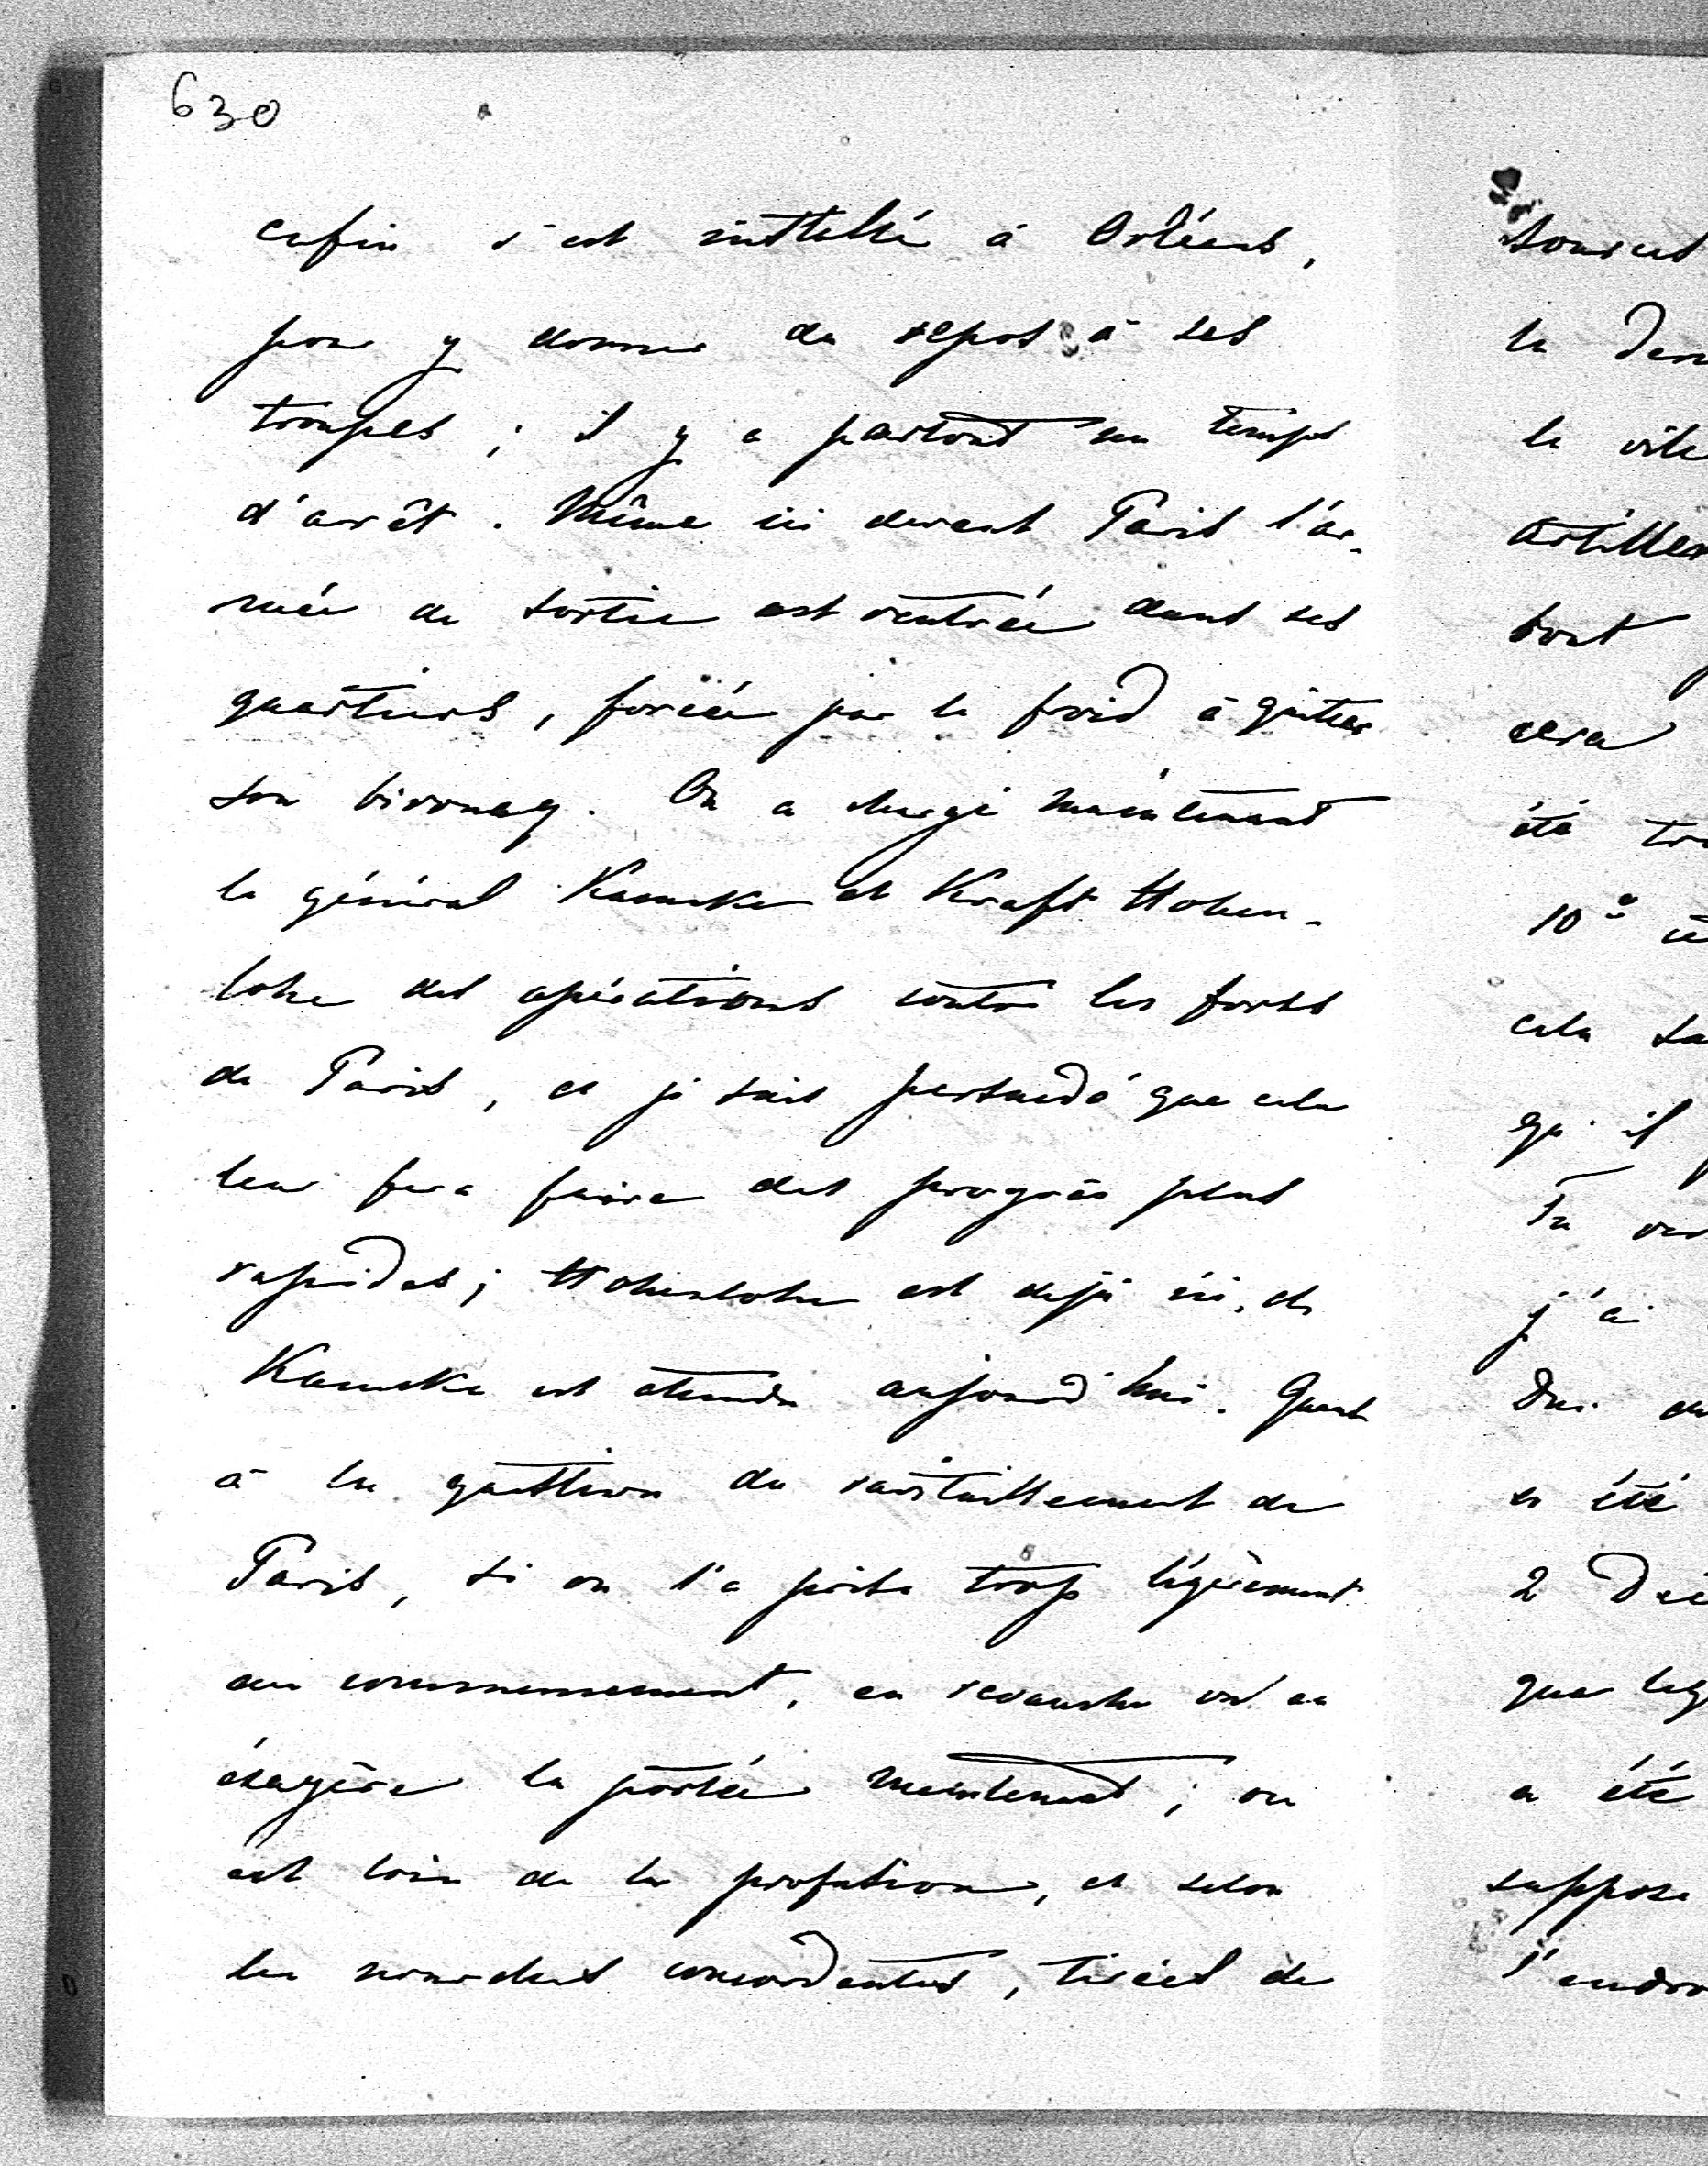 630
enfin s'est installé à Orléans,
pour y donner du repos à ses
troupes; il y a partout un temps
d'arrêt. Même ici devant Paris l'ar-
mée de sortie est rentrée dans ses
quartiers, forcée par le froid à quitter
son bivouaq. On a chargé maintenant
le général Kameke et Kraft Hohen-
lohe des opérations contre les forts
de Paris, et je suis persuadé que cela
leur fera faire des progrès plus
rapides; Hohenlohe est déjà ici, et
Kameke est attendu aujourd'hui. Quant
à la question du ravitaillement de
Paris, si on l'a prise trop légèrement
au commencement, en revanche on en
exagère la portée maintenant; on
est loin de la profusion, et selon
les nouvelles concordantes, tirées de
la
la ville
bout
sera
été
10e
cela
qu'il
Tu
j'ai
a été
2
que
a été
suppose